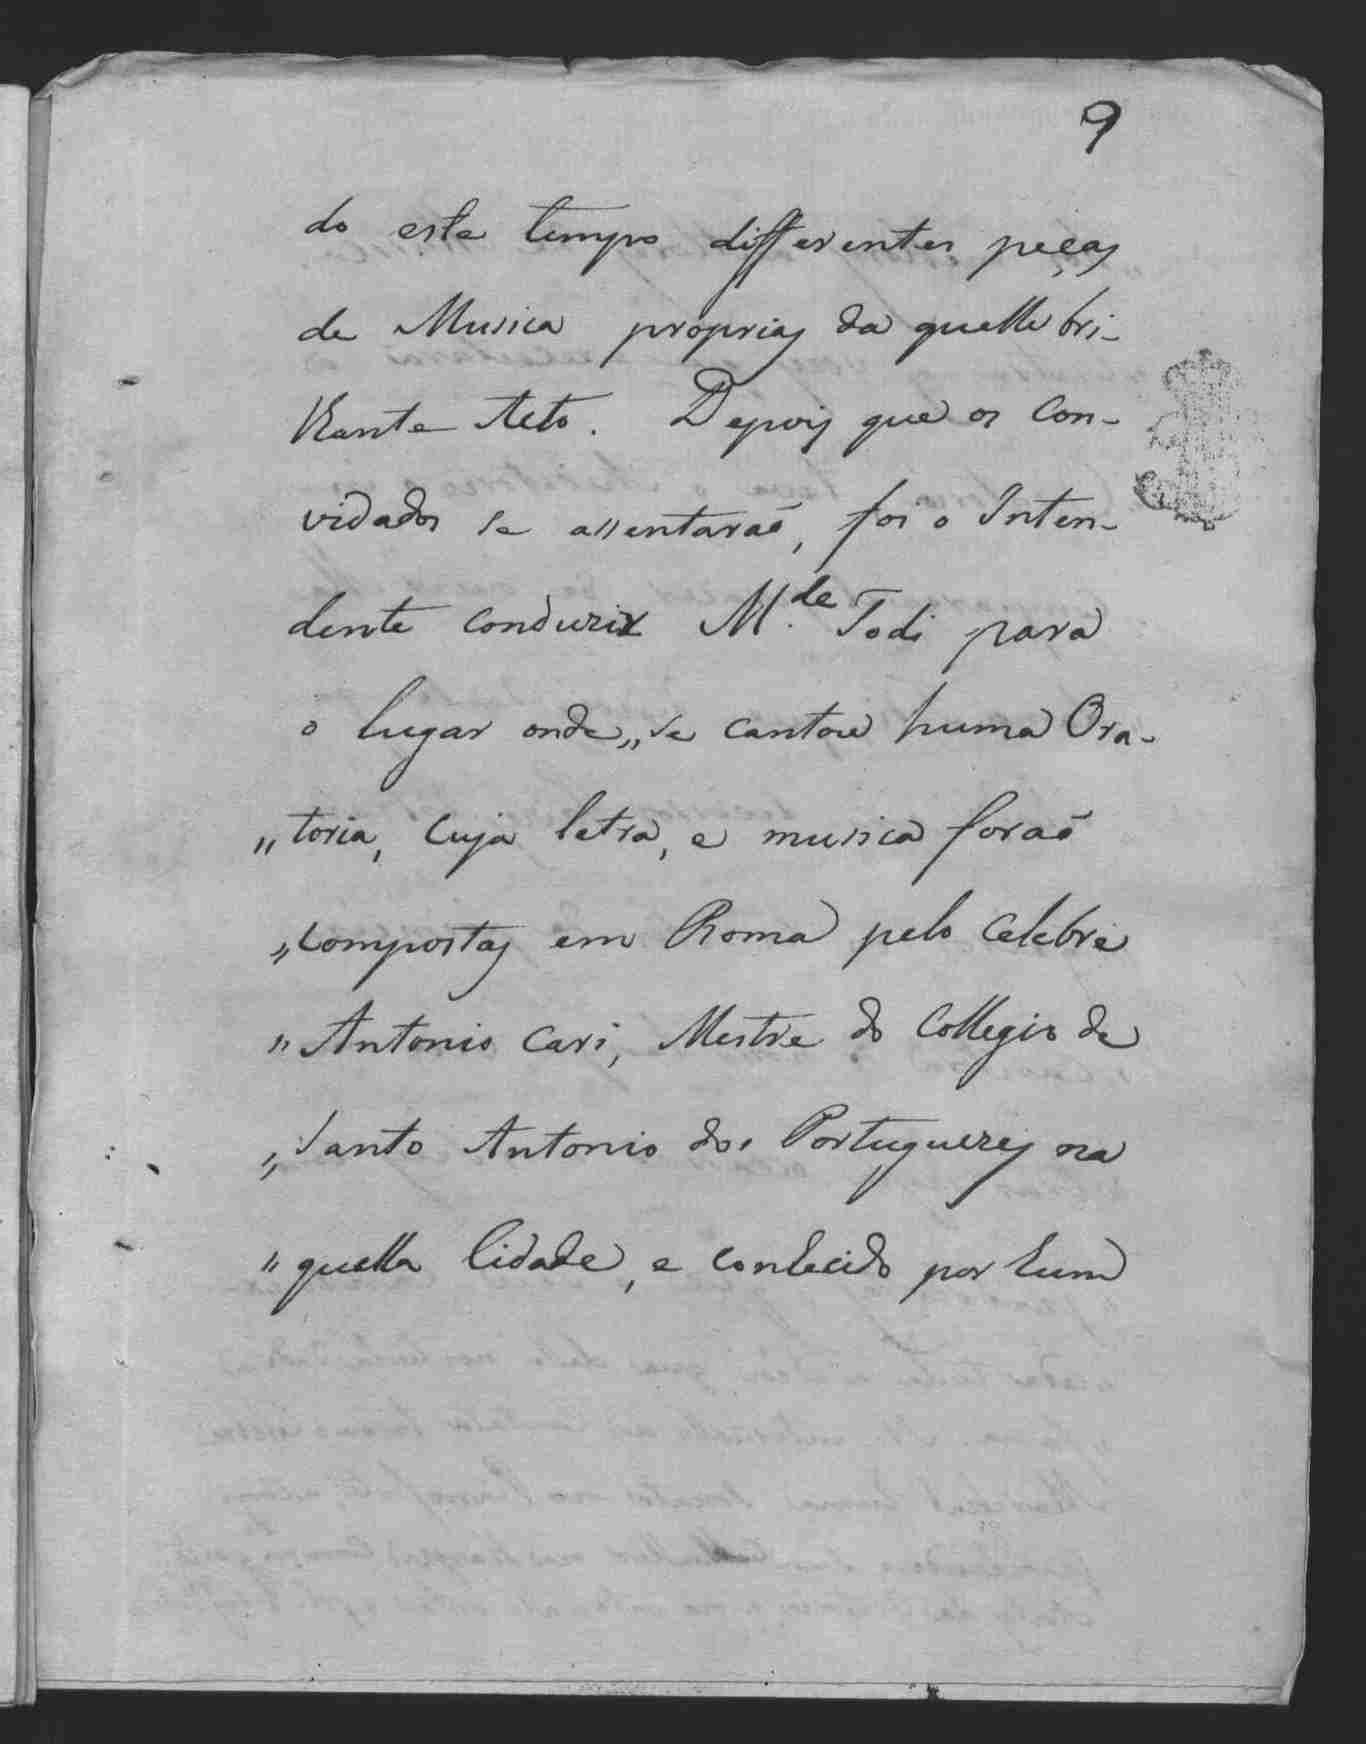 9
do este tempo differentes peças
de Musica proprias da quelle bri-
lhante Acto. Depois que os Con-
vidados se assentaraõ, foi o Inten-
dente conduzir M.de Todi para
o lugar onde „ se cantou huma Ora-
„ toria, cuja letra, e musica foraõ
„ compostas em Roma pelo celebre
„ Antonio Cari, Mestre do Collegio de
„ Santo Antonio dos Portuguezes na
„ quella Cidade, e conhecido por hum